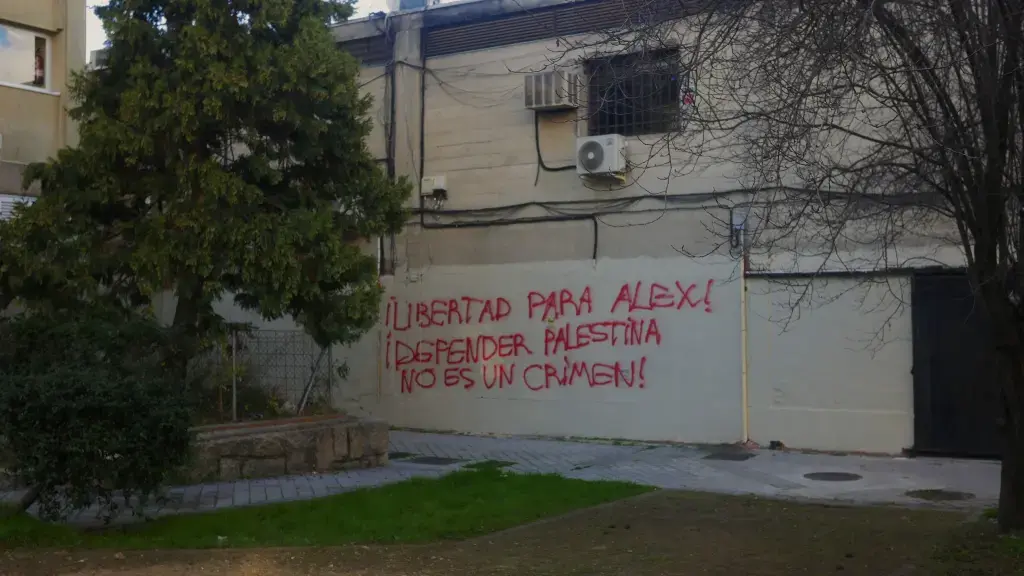 ¡LIBERTAD PARA ALEX!
¡DEFENDER PALESTINA
NO ES UN CRIMEN!